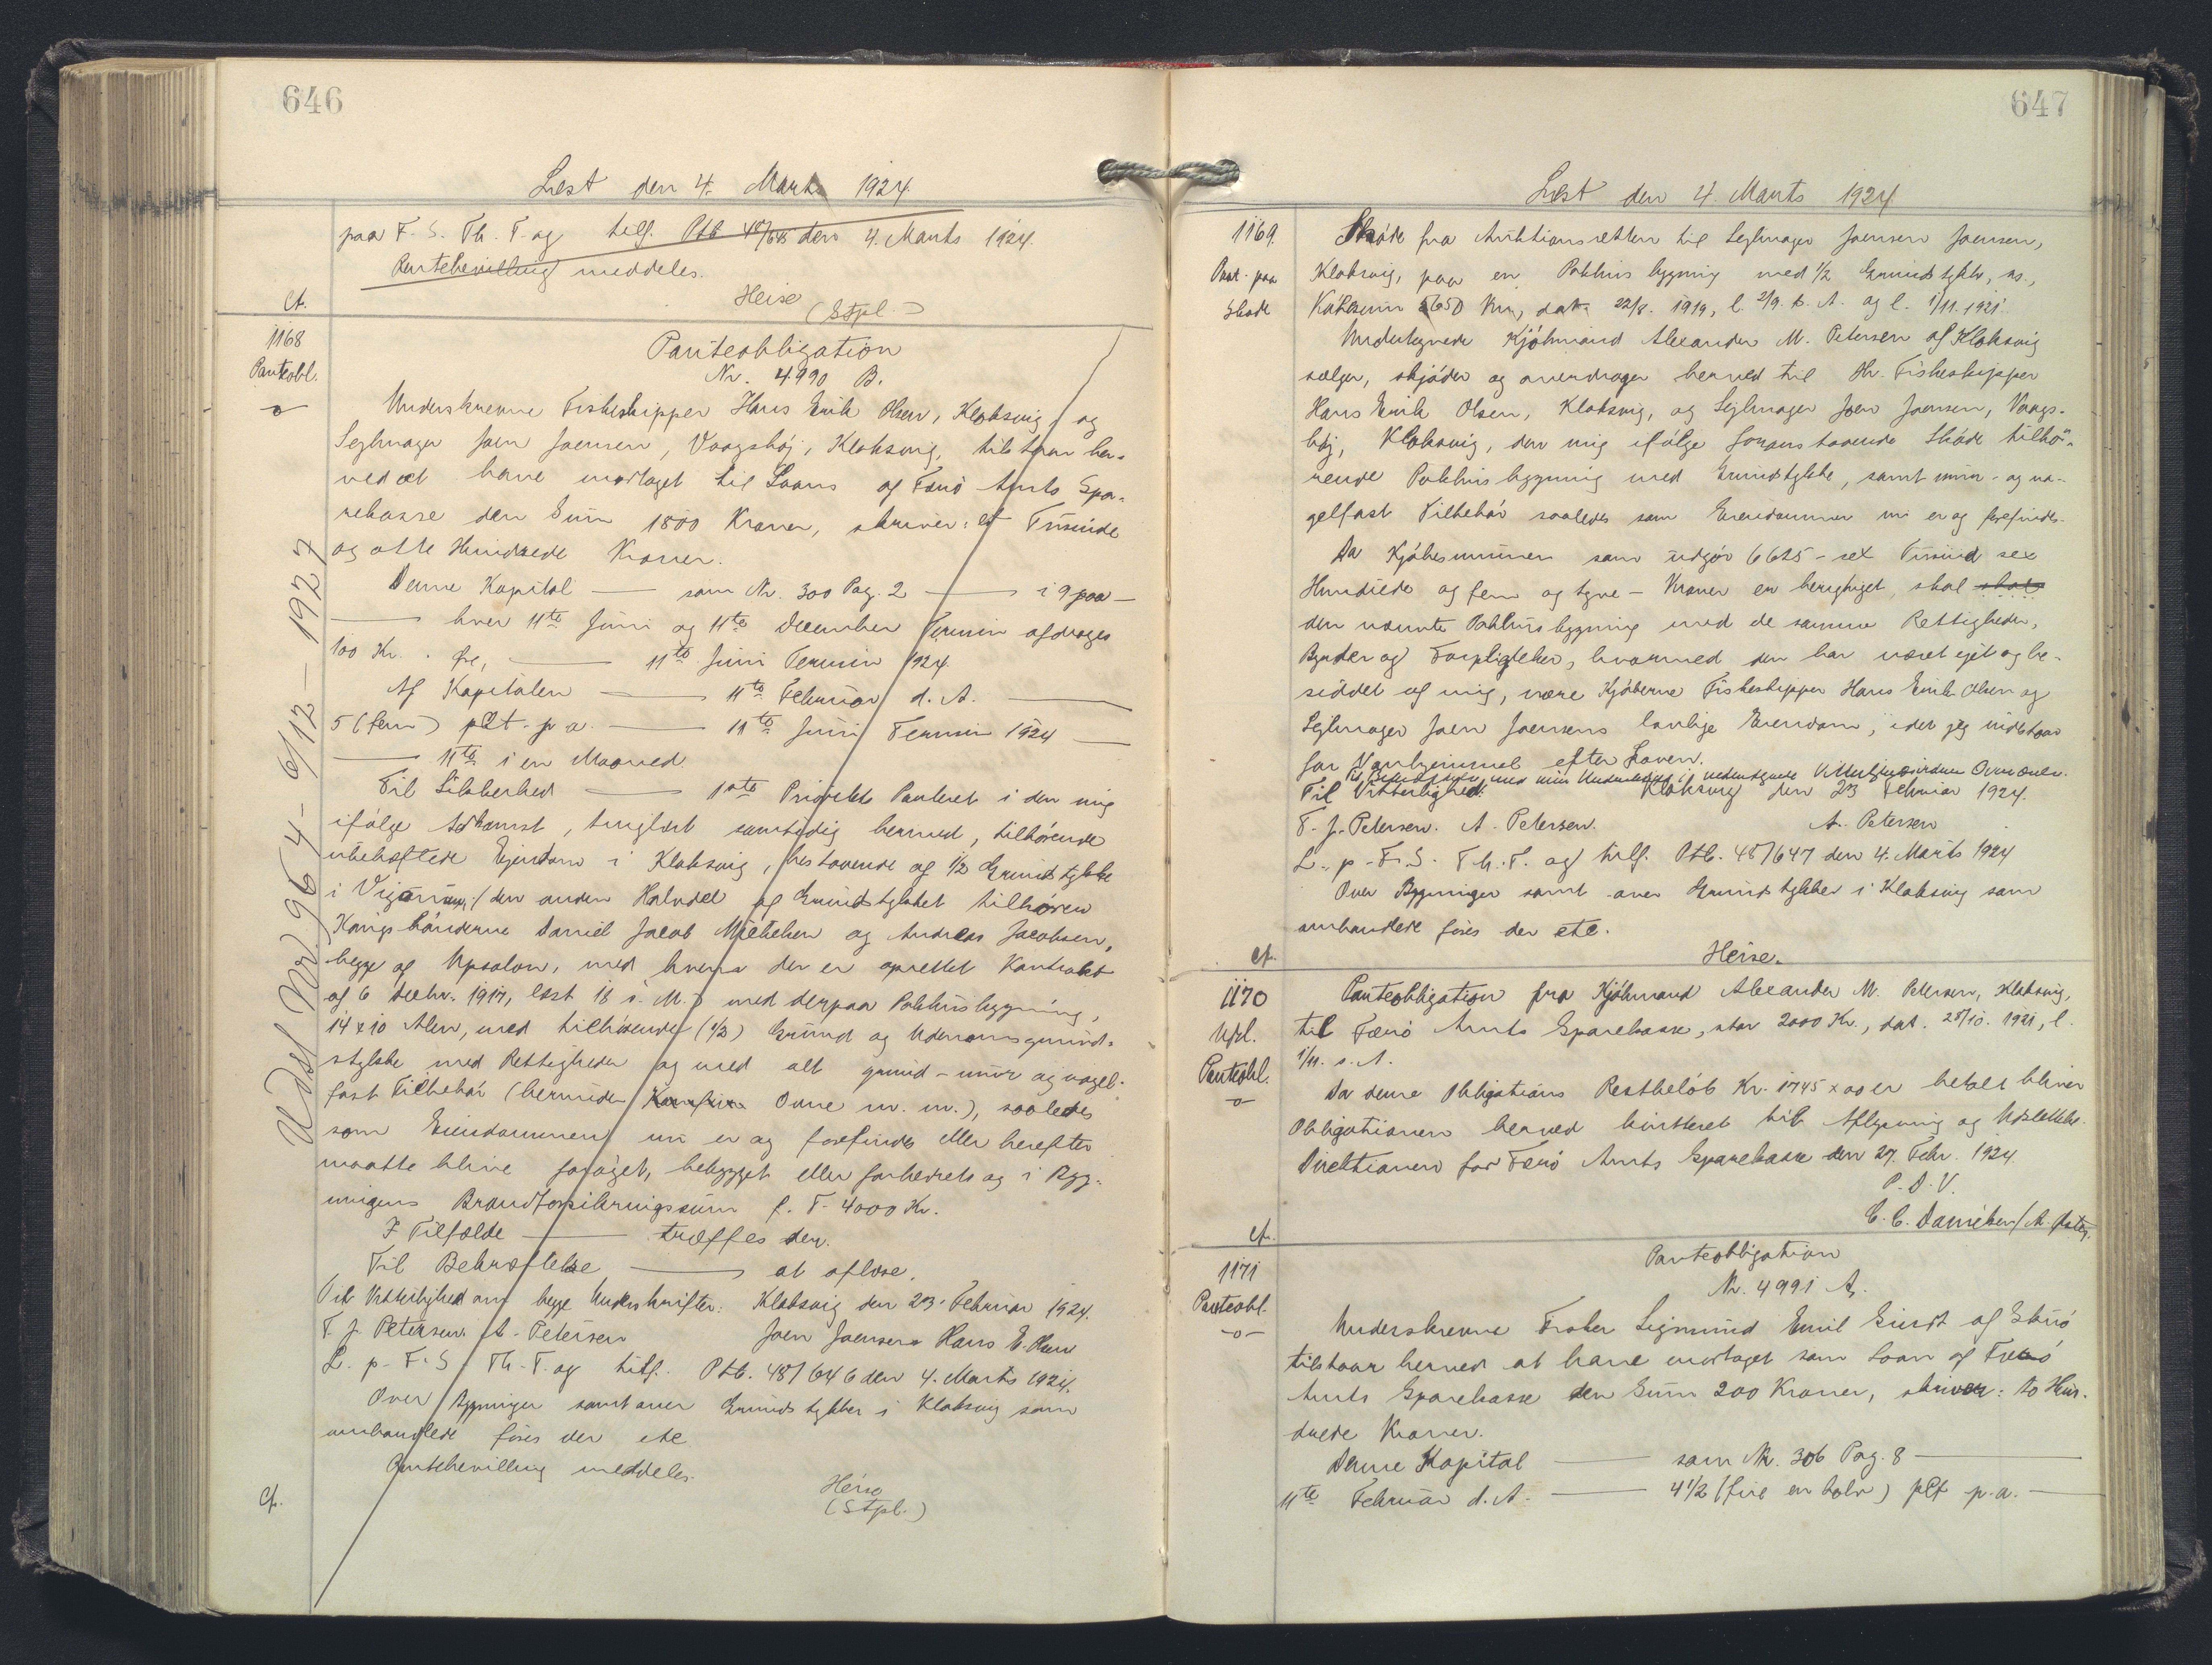 646
Læst den 4. Marts 1924.
paa F. S. Th. P. og tilf. Ptb 48/645 den 4. Marts 1924.
Pantebevilling meddeles.
Heise
(Stpl.)
cf.
1168
Pantobl.
Panteobligation
Nr. 4990 B.
Underskrevne Fiskeskipper Hans Erik Olsen, Klaksvig, og
Sejlmager Joen Joensen, Vaagshøj, Klaksvig, tilstaar her-
ved at have modtaget til Laans af Færø Amts Spa-
rekasse den Sum 1800 Kroner, skriver: et Tusinde
og otte Hundrede Kroner.
Denne Kapital — som Nr. 300 Pag. 2 — i 9 paa —
— hver 11te Juni og 11te December Termin afdrages
100 Kr. . Øre, — 11te Juni Termin 1924.
Af Kapitalen — 11te Februar d. A. —
5 (fem) pCt. p. a. — 11te Juni Termin 1924 —
— 11te i en Maaned.
Til Sikkerhed — 1ste Prioritets Panteret i den mig
ifølge Adkomst, tinglæst samtidig hermed, tilhørende
ubehæftede Ejendom i Klaksvig, bestaaende af 1/2 Grundstykke
i / den anden Halvdel af Grundstykket tilhører
Kongsbønderne Daniel Jacob Mikkelsen og Andreas Jacobsen,
begge af Upsalon, med hvem der er oprettet Kontrakt
af 6 Decbr. 1917, læst 18 s. M.) med derpaa Pakhusbygning,
14 x 10 Alen, med tilhørende (1/2) Grund og Udenomsgrund-
stykke med Rettigheder og med alt grund- mur og nagel-
fast Tilbehør (herunder Komfur Ovne m. m.), saaledes
som Eiendommen nu er og forefindes eller herefter
maatte blive forøget, bebygget eller forbedret og i Byg-
ningens Brandforsikringssum f. T. 4000 Kr.
I Tilfælde — træffes den.
Til Bekræftelse — at aflæse.
Til Vitterlighed om begge Underskrifter: Klaksvig den 23. Februar 1924.
T. J. Petersen. A. Petersen Joen Joensen Hans E. Olsen
L. p. F. S. Th. P. og tilf. Ptb. 48/646 den 4. Marts 1924.
Over Bygninger samt over Grundstykker i Klaksvig som
omhandlede føres der etc.
Pantebevilling meddeles.
Heise
(Stpl.)
cf.
Udsl Nr 964 - 6/12 - 1927
647
Læst den 4. Marts 1924
1169.
Paat. paa
Skøde
Skøde fra Auktionsretten til Sejlmager Joensen Joensen,
Klaksvig, paa en Pakhusbygning med 1/2 Grundstykke, m.,
Købesum 5650 Kr., dat. 22/8. 1919, l. 2/9. s. A. og l. 1/11. 1921.
Undertegnede Kjøbmand Alexander M. Petersen af Klaksvig
sælger, skjøder og overdrager herved til Hr. Fiskeskipper
Hans Erik Olsen, Klaksvig, og Sejlmager Joen Joensen, Vaags-
høj, Klaksvig, den mig ifølge foranstaaende Skøde tilhø-
rende Pakhusbygning med Grundstykke, samt mur- og na-
gelfast Tilbehør saaledes som Eiendommen nu er og forefindes.
Da Kjøbesummen som udgør 6625 - sex Tusind sex
Hundrede og fem og tyve - Kroner er berigtiget, skal skal
den nævnte Pakhusbygning med de samme Rettigheder,
Byrder og Forpligtelser, hvormed den har været ejet og be-
siddet af mig, være Kjøberne Fiskeskipper Hans Erik Olsen og
Sejlmager Joen Joensens lovlige Eiendom, idet jeg indestaar
for Vanhjemmel efter Loven.
Til Bekræftelse med min Underskrift i undertegnede Vitterlighedsvidners Overvær.
Til Vitterlighed: Klaksvig den 23 Februar 1924.
T. J. Petersen. A. Petersen. A. Petersen
L. p. F. S. Th. P. og tilf. Ptb. 48/647 den 4. Marts 1924
Over Bygninger samt over Grundstykker i Klaksvig som
omhandlede føres der etc.
cf.
Heise.
1170
Udsl.
Panteobl.
Panteobligation fra Kjøbmand Alexander M. Petersen, Klaksvig,
til Færø Amts Sparekasse, stor 2000 Kr., dat. 28/10. 1921, l.
1/11. s. A.
Da denne Obligations Restbeløb Kr. 1745 x 00 er betalt bliver
Obligationen herved kvitteret til Aflysning og Udslettelse.
Direktionen for Færø Amts Sparekasse den 27. Febr. 1924.
P. D. V.
C. C. Danielsen /
cf.
1171
Panteobl.
Panteobligation
Nr. 4991 A.
Underskrevne Fisker Sigmund Emil af Skuø
tilstaar herved at have modtaget som Laan af Færø
Amts Sparekasse den Sum 200 Kroner, skriver: to Hun-
drede Kroner.
Denne Kapital — som Nr. 306 Pag. 8 —
11te Februar d. A. — 4 1/2 (fire en halv) pCt p. a. —